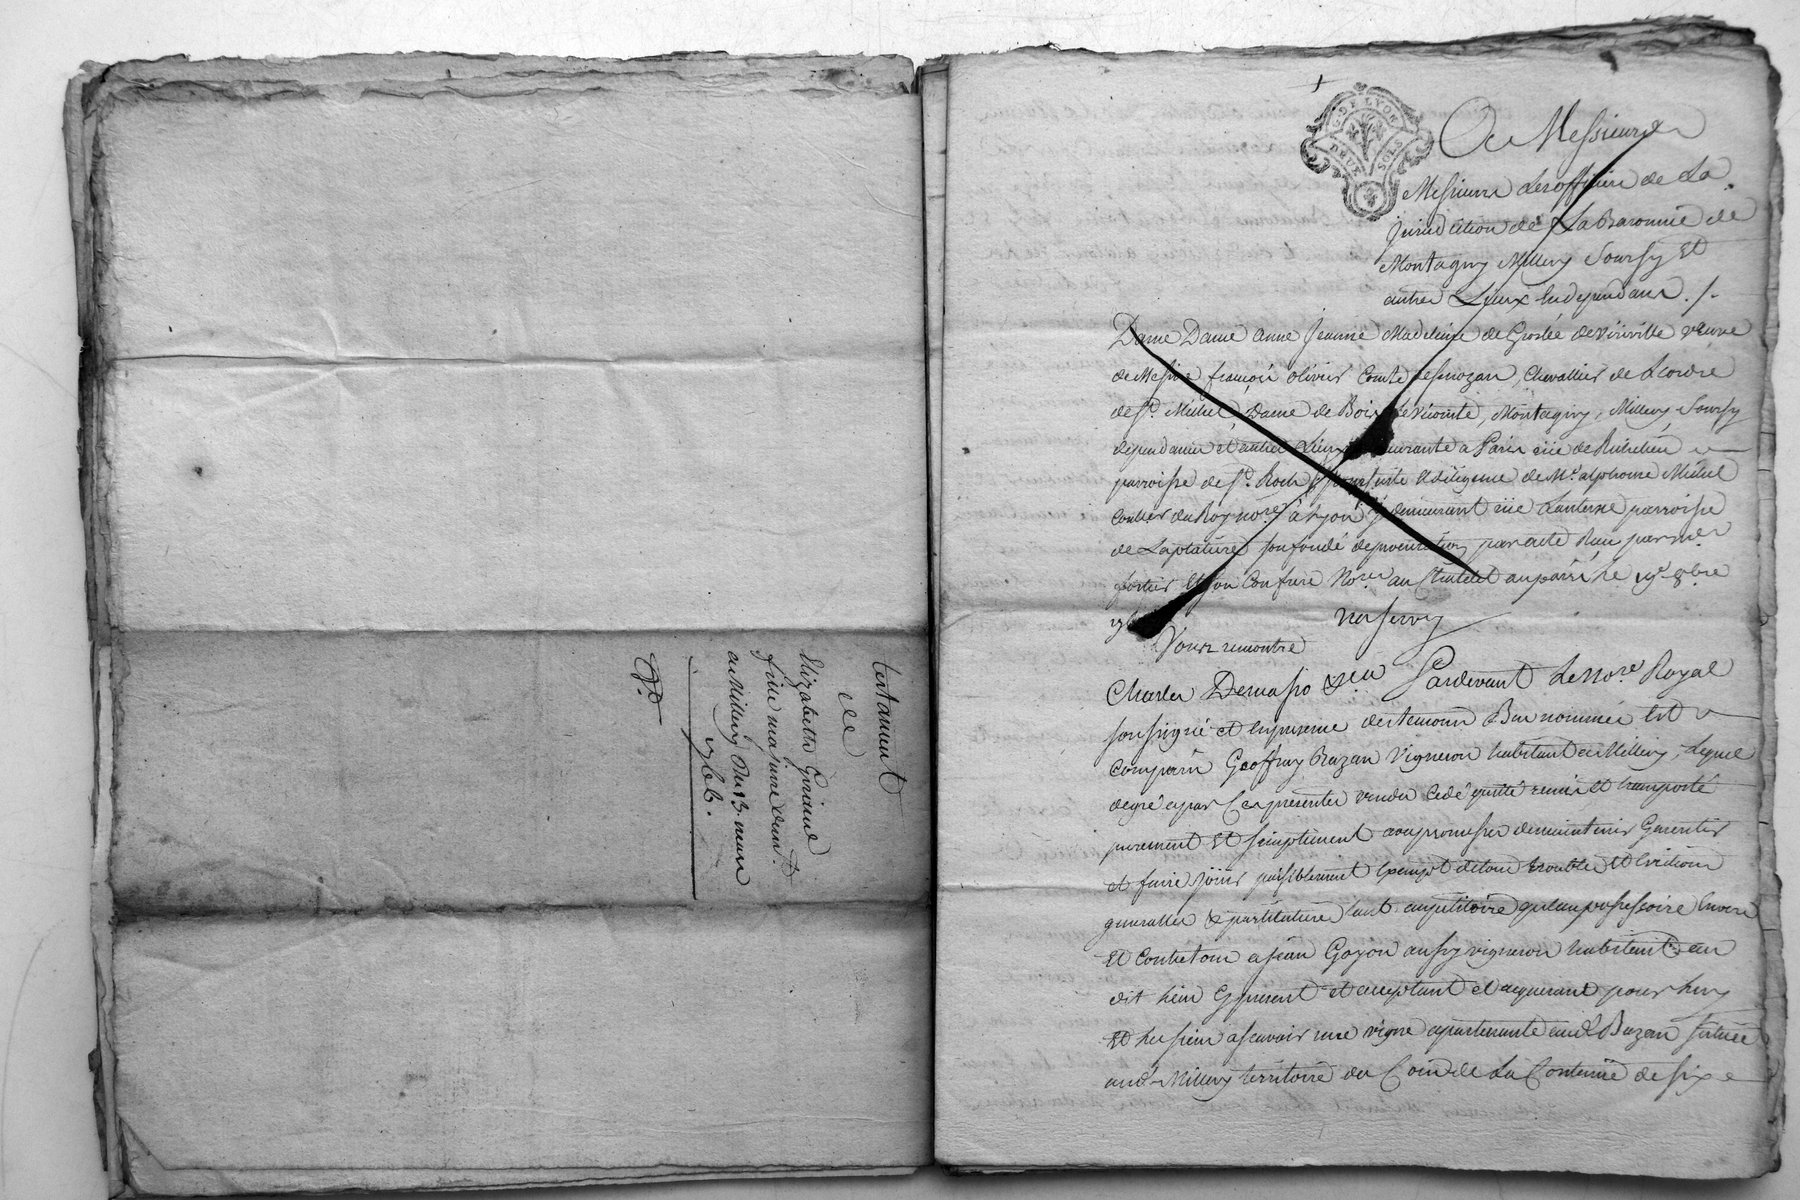 testament
de
Elizabeth Giraud
fille majeure demt.
a Millery Du 13. mars
1766.
Exp.
G. DE LYON
DEUX SOLS
A Messieurs
Messieurs Les officiers de La
Jurisdiction de La Baronnie de
Montagny Millery Sourzy Et
autres Lieux En dependans ./.
Dame Dame anne Jeanne Madeleine de Grolée de Viriville veuve
de Messire françois olivier Comte de senozan, Chevallier de Lordre
de St. Michel, Dame de Bois Le Vicomte, Montagny, Millery Sourzy
dependances et autres Lieux demeurante a Paris rüe de Richelieu
parroisse de St. Roch poursuite Et diligence de Me. alphonse Michel
Conller du Roy nore. a Lyon y demeurant rüe Lanterne parroisse
de Laplatiere son fondé de procuration par acte Recu par me
fortier Et son Confrere Nores. au Chatelet de paris le 19e. 8bre
17
Vous remontre
Charles Demasso
Pardevant Le Nore. Royal
soussigné et En presence des temoins Bas nommés Est
Comparu Geoffray Bazan Vigneron habitant a Millery, Lequel
de gré a par Ces presentes vendu Cedé quitté remis Et transporté
purement Et simplement avec promesse de maintenir Garentir
et faire joüir paisiblement Exempt de tous troubles Et Evictions
generalles & particuliere tant au petitoire qu'au possessoire Envers
Et Contre tous a Jean Goyon aussy vigneron habitant au
dit lieu Cy present et acceptant et acquerant pour luy
Et les siens a scavoir une vigne apartenante aud. Bazan Située
aud. Millery territoire du Coin de La Contenüe de six